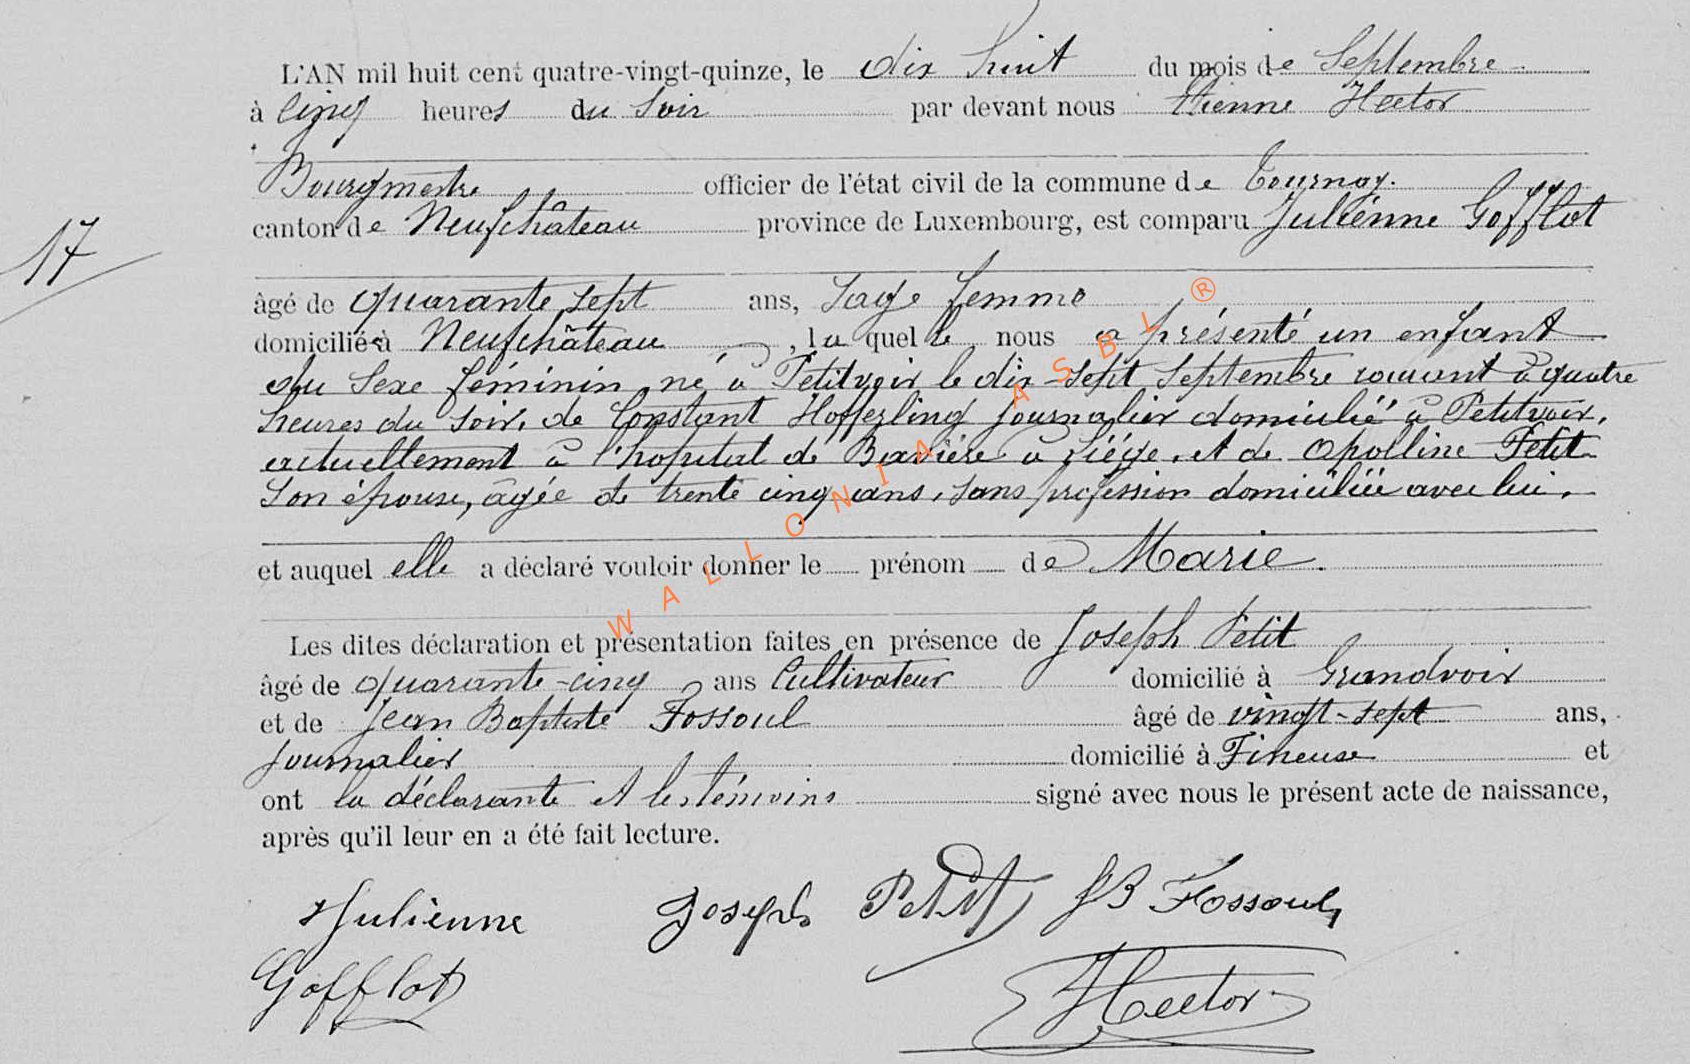 L'AN mil huit cent quatre-vingt-quinze, le dix huit du mois de Septembre
à cinq heures du soir par devant nous Etienne Hector
Bourgmestre officier de l'état civil de la commune de Tournay.
17
canton de Neufchâteau province de Luxembourg, est comparu Julienne Gofflot
âgé de quarante sept ans, Sage femme
domiciliée à Neufchâteau, la quelle nous a présenté un enfant
du Sexe féminin, né à Petitvoir le dix-sept Septembre courant à quatre
heures du soir, de Constant Hofferling journalier domicilié à Petitvoir,
actuellement à l'hopital de Bavière à Liége, et de Apolline Petit
son épouse, âgée de trente cinq ans, sans profession domiciliée avec lui.
et auquel elle a déclaré vouloir donner le prénom de Marie.
Les dites déclaration et présentation faites en présence de Joseph Petit
âgé de quarante-cinq ans Cultivateur domicilié à Grandvoir
et de Jean Baptiste Fossoul âgé de vingt-sept ans,
journalier domicilié à Fineuse et
ont la déclarante et les témoins signé avec nous le présent acte de naissance,
après qu'il leur en a été fait lecture.
Julienne Joseph Petit JB Fossoul
Gofflot Hector
WALLONIA ASBL ®